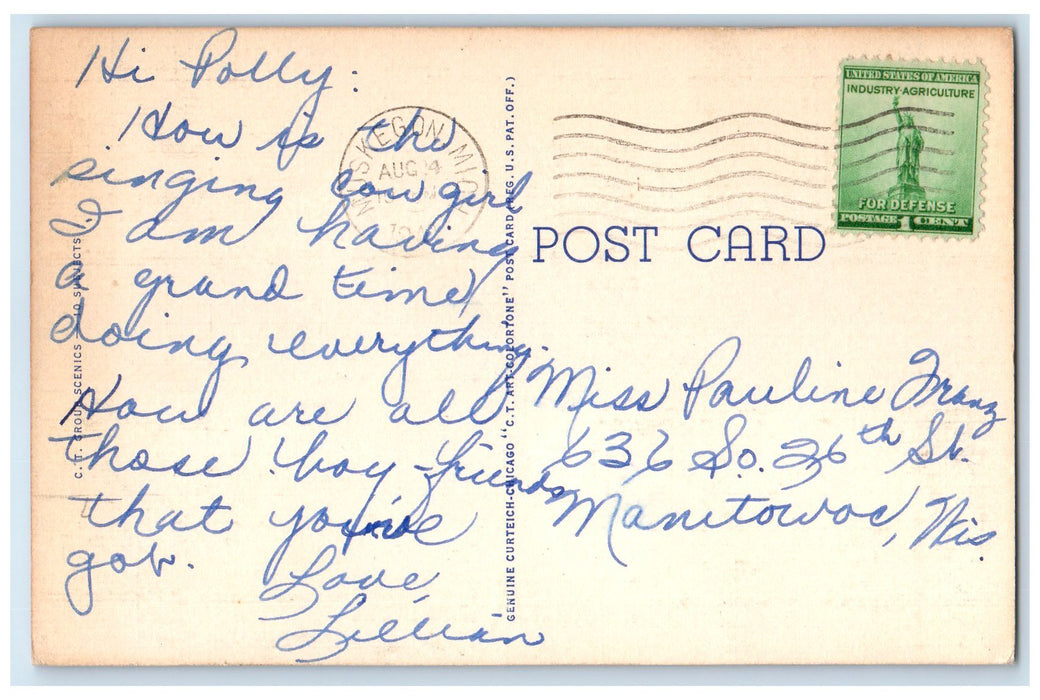 Hi Polly:
How is the
singing cowgirl
I am having
a grand time,
doing everything.
How are all
those boy-friends
that you've
got.
Love,
Lillian
C. T. GROUP SCENICS — 10 SUBJECTS
GENUINE CURTEICH-CHICAGO "C.T. ART-COLORTONE" POST CARD (REG. U.S. PAT. OFF.)
MUSKEGON, MICH.
AUG 4
POST CARD
UNITED STATES OF AMERICA
INDUSTRY·AGRICULTURE
FOR DEFENSE
POSTAGE 1 CENT
Miss Pauline Franz
636 So. 26th St.
Manitowoc, Wis.